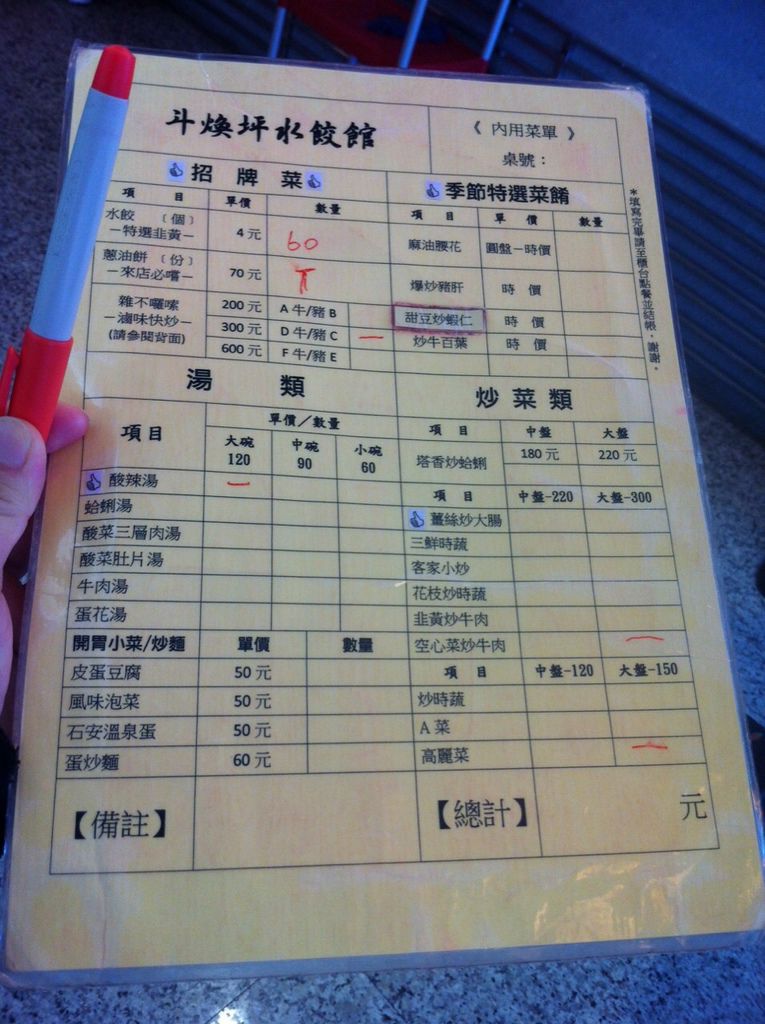 斗煥坪水餃館
《 內用菜單 》
桌號：
招 牌 菜
季節特選菜餚
項 目 單價 數量
項 目 單 價 數量
水餃 〔個〕
－特選韭黃－ 4 元 60
蔥油餅 〔份〕
－來店必嚐－ 70 元 T
雜不囉嗦
－滷味快炒－
(請參閱背面)
200 元 A 牛/豬 B
300 元 D 牛/豬 C 一
600 元 F 牛/豬 E
麻油腰花 圓盤－時價
爆炒豬肝 時 價
甜豆炒蝦仁 時 價
炒牛百葉 時 價
*填寫完畢請至櫃台點餐並結帳，謝謝。
湯 類
項目 單價／數量
大碗 中碗 小碗
120 90 60
酸辣湯 一
蛤蜊湯
酸菜三層肉湯
酸菜肚片湯
牛肉湯
蛋花湯
開胃小菜/炒麵 單價 數量
皮蛋豆腐 50 元
風味泡菜 50 元
石安溫泉蛋 50 元
蛋炒麵 60 元
炒 菜 類
項 目 中盤 大盤
塔香炒蛤蜊 180 元 220 元
項 目 中盤-220 大盤-300
薑絲炒大腸
三鮮時蔬
客家小炒
花枝炒時蔬
韭黃炒牛肉
空心菜炒牛肉 一
項 目 中盤-120 大盤-150
炒時蔬
A 菜
高麗菜 一
【備註】
【總計】 元